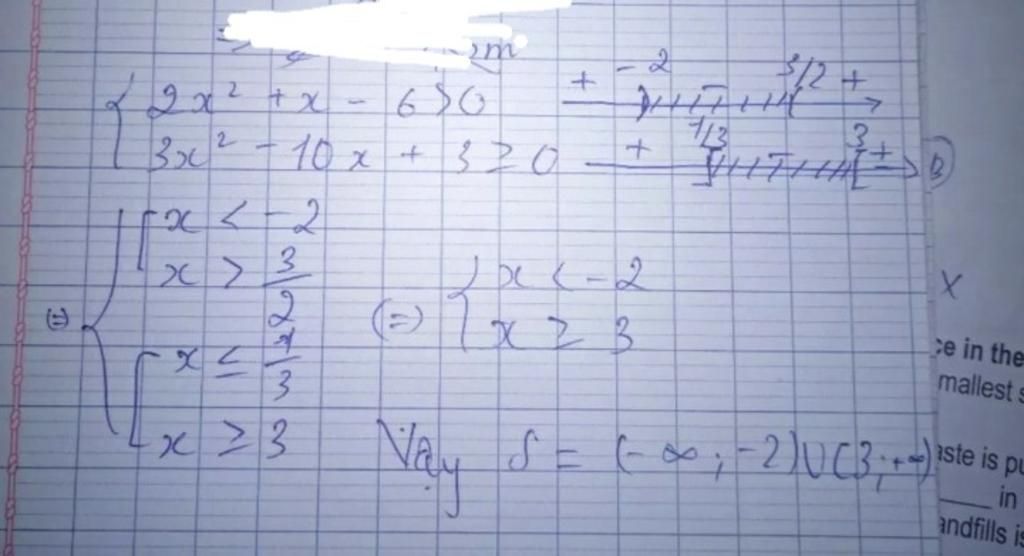 2m
2x² + x - 6 > 0 + -2 - 3/2 +
3x² - 10x + 3 ≥ 0 + 1/3 - 3 +
x < -2
x > 3/2
(=) x ≤ 1/3
x ≥ 3
(=) x < -2
x ≥ 3
Vậy S = (-∞; -2) ∪ (3; +∞)
X
ce in the
mallest s
aste is pu
____ in
andfills is